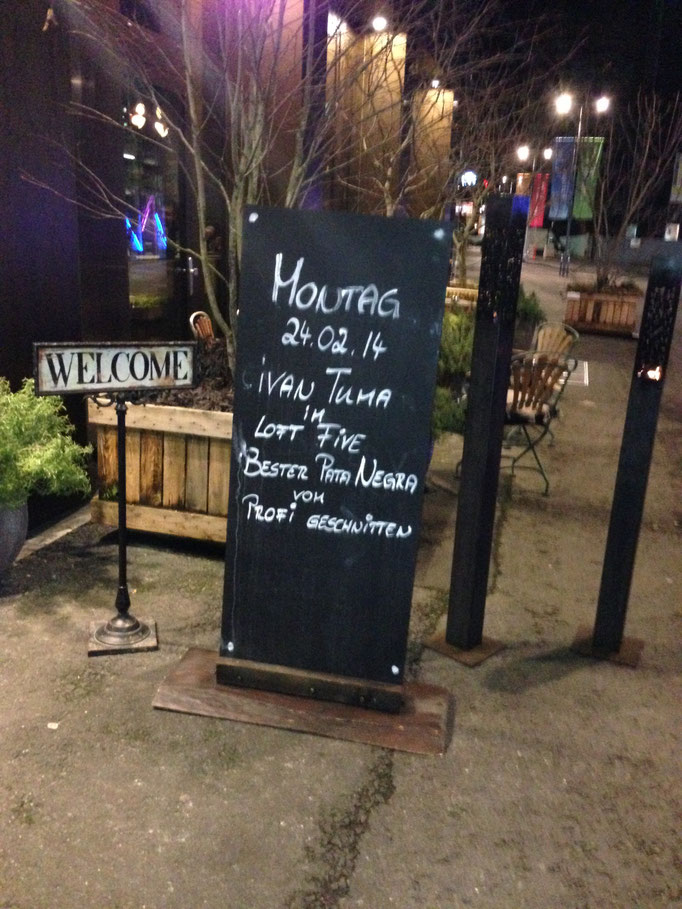 WELCOME
MONTAG
24.02.14
IVAN TUMA
IM
LOFT FIVE
BESTER PATA NEGRA
VOM
PROFI GESCHNITTEN